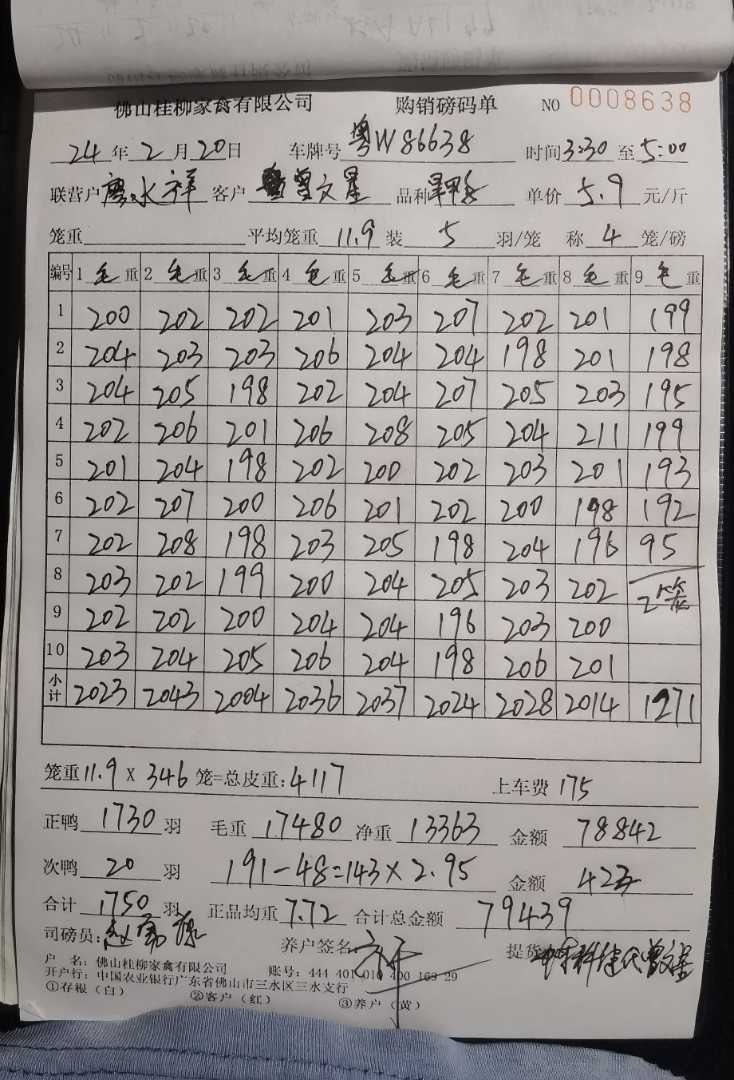 佛山桂柳家禽有限公司 购销磅码单 NO 0008638
24年2月20日 车牌号 粤W86638 时间3:30至5:00
联营户 廖水祥 客户 曾文星 品种 单价 5.9 元/斤
笼重 平均笼重 11.9 装 5 羽/笼 称 4 笼/磅
编号 1 毛重 2 毛重 3 毛重 4 毛重 5 毛重 6 毛重 7 毛重 8 毛重 9 毛重
1 200 202 202 201 203 207 202 201 199
2 204 203 203 206 204 204 198 201 198
3 204 205 198 202 204 207 205 203 195
4 202 206 201 206 208 205 204 211 199
5 201 204 198 202 200 202 203 201 193
6 202 207 200 206 201 202 200 198 192
7 202 208 198 203 205 198 204 196 95
8 203 202 199 200 204 205 203 202 2笼
9 202 202 200 204 204 196 203 200
10 203 204 205 206 204 198 206 201
小计 2023 2043 2004 2036 2037 2024 2028 2014 1271
笼重 11.9 X 346 笼=总皮重: 4117 上车费 175
正鸭 1730 羽 毛重 17480 净重 13363 金额 78842
次鸭 20 羽 191-48=143×2.95 金额 422
合计 1750 羽 正品均重 7.72 合计总金额 79439
司磅员: 养户签名: 祥 提货 曾文星
户 名: 佛山桂柳家禽有限公司 账号: 444 401 010 400 169 29
开户行: 中国农业银行广东省佛山市三水区三水支行
①存根(白) ②客户(红) ③养户(黄)